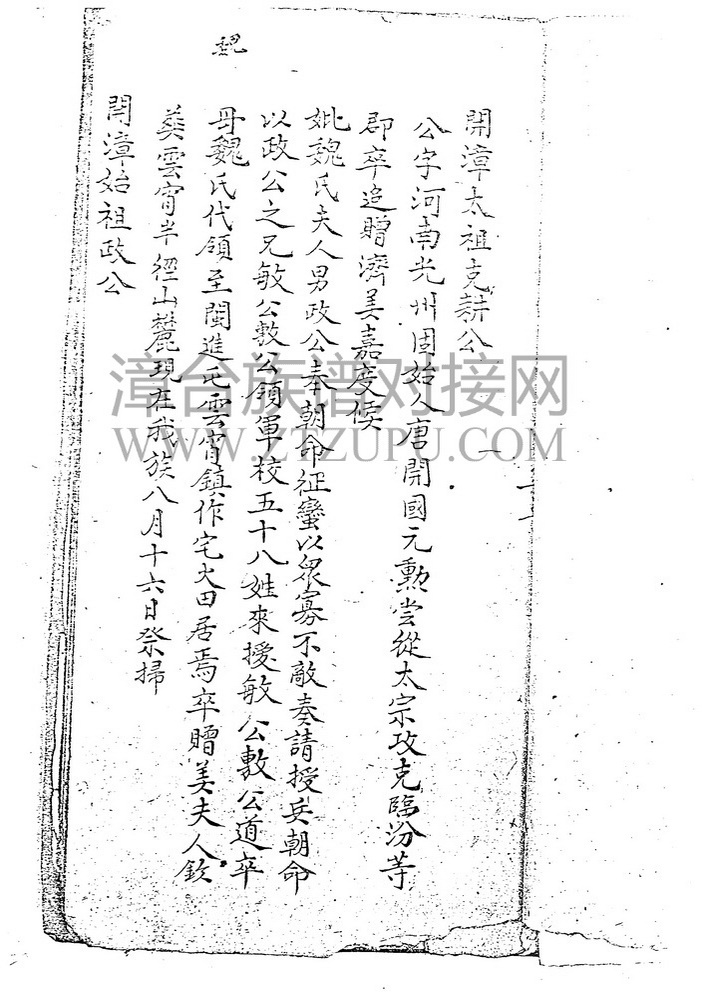 魏
開漳太祖克耕公
公字河南光州固始人唐開國元勲嘗從太宗攻克臨汾等
郡卒追贈濟美嘉度候
妣魏氏夫人男政公奉朝命征蠻以衆寡不敵奏請授兵朝命
以政公之兄敏公敷公領軍校五十八姓來授敏公敷公道卒
母魏氏代領至閩進屯雲霄鎮作宅火田居焉卒贈美夫人欽
葬雲霄半徑山麓現在我族八月十六日祭掃
開漳始祖政公
漳台族谱对接网
WWW.ZTZUPU.COM